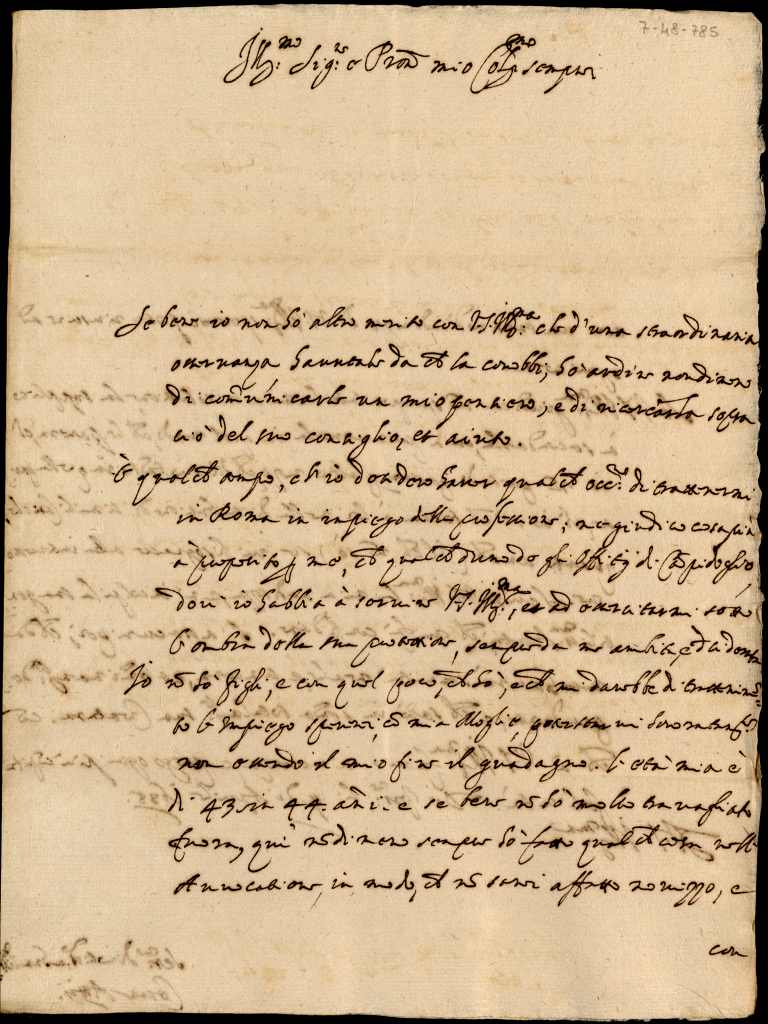 7-48-785
Ill.mo Sig.re e Pron mio Col.mo sempre
Se bene io non hò altro merito con V.S. Ill.ma che d'una straordinaria
osservanza havutale da che la conobbi, hò ardire nondimeno
di com̃unicarle un mio pensiero, e di ricercarla sopra
ciò del suo consiglio, et aiuto.
È qualche tempo, ch'io desidero haver qualche occ.ne di trattenermi
in Roma in impiego della professione; ne giudico cosa più
à proposito p me, che qualched'uno de gli Offitij di Cãpidoglio,
dove io habbia à servire V.S. Ill.ma, et ad esercitarmi sotto
l'ombra della sua protettione, sempre da me ambita, e
Io nõ hò figli, e con quel poco, che hò, e che mi darebbe di trattenimẽ=
to l'Impiego spererei, cõ mia Moglie, potervi
non essendo il mio fine il guadagno. l'età mia è
di 43 in 44. añi. e se bene nõ hò molto travagliato
fuora, quì nõdimeno sempre hò fatto qualche cosa nell'
Avvocatione, in modo, che nõ sarei affatto novizzo, e
con